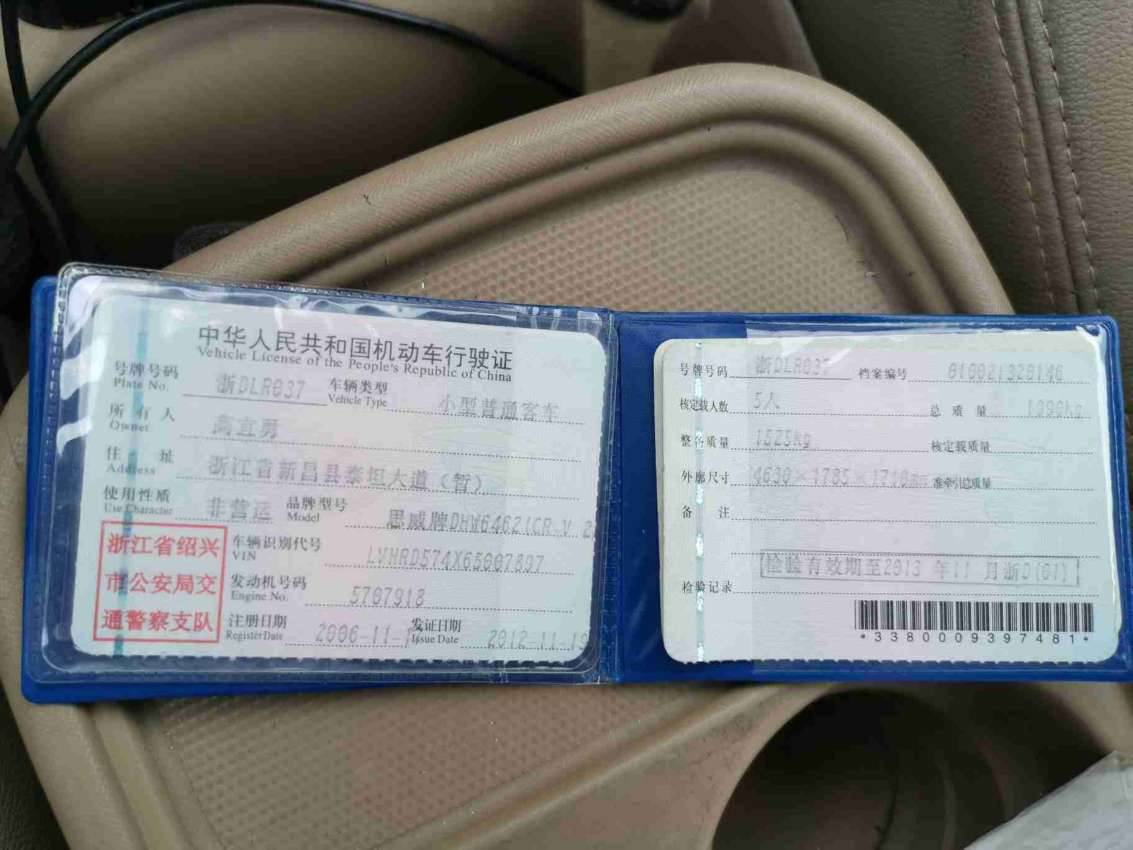 中华人民共和国机动车行驶证
Vehicle License of the People's Republic of China
号牌号码 浙DLR037 车辆类型 小型普通客车
Plate No. Vehicle Type
所有人 高宜勇
Owner
住址 浙江省新昌县泰坦大道（暂）
Address
使用性质 非营运 品牌型号 思威牌DHW6462(CR-V 2
Use Character Model
浙江省绍兴
市公安局交
通警察支队
车辆识别代号 LVHRD574X65007897
VIN
发动机号码 5707918
Engine No.
注册日期 2006-11-1 发证日期 2012-11-19
Register Date Issue Date
号牌号码 浙DLR037 档案编号 010021320146
核定载人数 5人 总质量
整备质量 1525kg 核定载质量
外廓尺寸 4630×1785×1710mm 准牵引总质量
备注
检验有效期至2013年11月浙D(01)
检验记录
*3380009397481*